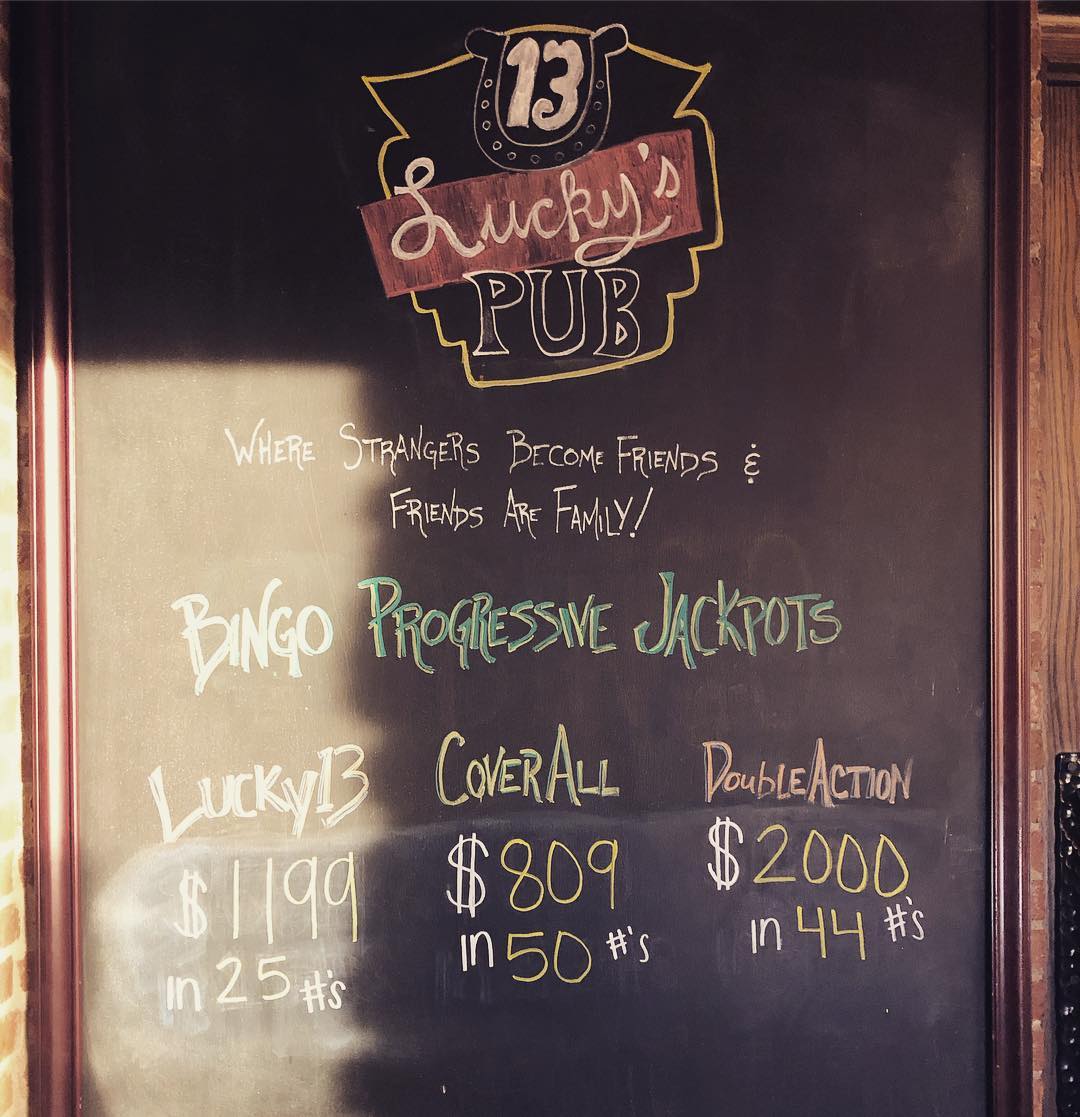 13
Lucky's
PUB
WHERE STRANGERS BECOME FRIENDS &
FRIENDS ARE FAMILY!
BINGO PROGRESSIVE JACKPOTS
LUCKY13 COVERALL DOUBLEACTION
$1199 $809 $2000
in 25 #'s in 50 #'s in 44 #'s